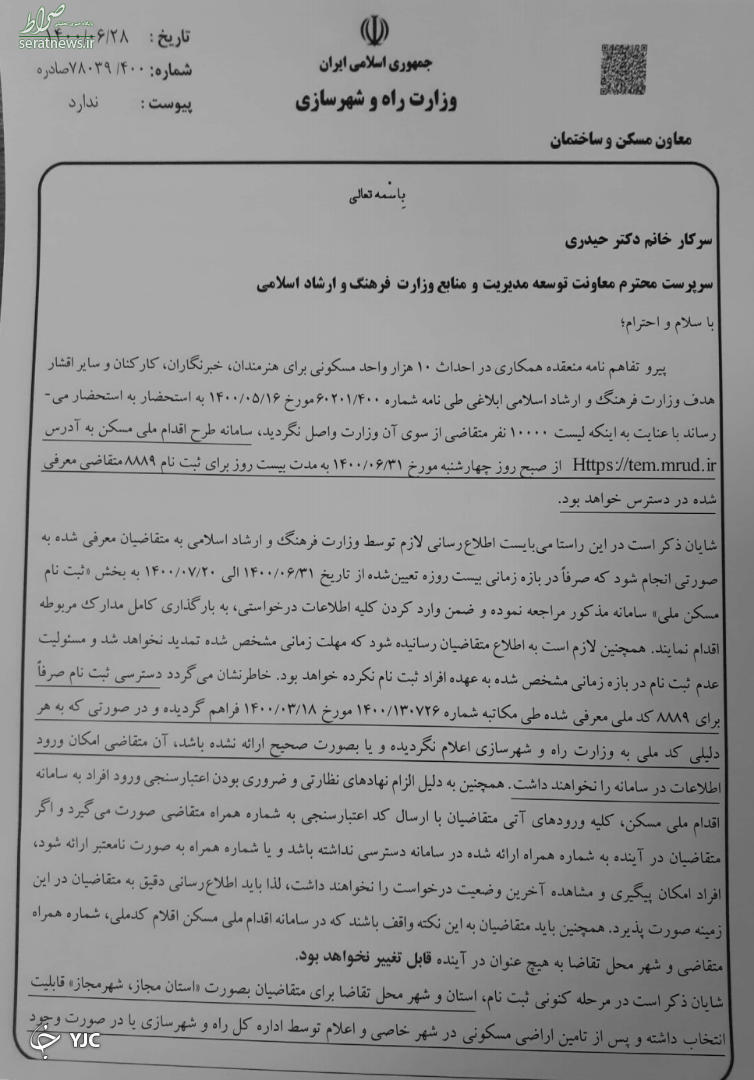 صراط
پایگاه خبری تحلیلی
seratnews.ir
تاریخ : ۱۴۰۰/۰۶/۲۸
شماره: ۴۰۰/ ۷۸۰۳۹صادره
پیوست : ندارد
جمهوری اسلامی ایران
وزارت راه و شهرسازی
معاون مسکن و ساختمان
باسمه تعالی
سرکار خانم دکتر حیدری
سرپرست محترم معاونت توسعه مدیریت و منابع وزارت فرهنگ و ارشاد اسلامی
با سلام و احترام؛
پیرو تفاهم نامه منعقده همکاری در احداث ۱۰ هزار واحد مسکونی برای هنرمندان، خبرنگاران، کارکنان و سایر اقشار
هدف وزارت فرهنگ و ارشاد اسلامی ابلاغی طی نامه شماره ۶۰۲۰۱/۴۰۰مورخ ۱۴۰۰/۰۵/۱۶ به استحضار به استحضار می-
رساند با عنایت به اینکه لیست ۱۰۰۰۰ نفر متقاضی از سوی آن وزارت واصل گردید، سامانه طرح اقدام ملی مسکن به آدرس
Https://tem.mrud.ir از صبح روز چهارشنبه مورخ ۱۴۰۰/۰۶/۳۱ به مدت بیست روز برای ثبت نام ۸۸۸۹ متقاضی معرفی
شده در دسترس خواهد بود.
شایان ذکر است در این راستا می‌بایست اطلاع‌رسانی لازم توسط وزارت فرهنگ و ارشاد اسلامی به متقاضیان معرفی شده به
صورتی انجام شود که صرفاً در بازه زمانی بیست روزه تعیین‌شده از تاریخ ۱۴۰۰/۰۶/۳۱ الی ۱۴۰۰/۰۷/۲۰ به بخش «ثبت نام
مسکن ملی» سامانه مذکور مراجعه نموده و ضمن وارد کردن کلیه اطلاعات درخواستی، به بارگذاری کامل مدارک مربوطه
اقدام نمایند. همچنین لازم است به اطلاع متقاضیان رسانیده شود که مهلت زمانی مشخص شده تمدید نخواهد شد و مسئولیت
عدم ثبت نام در بازه زمانی مشخص شده به عهده افراد ثبت نام نکرده خواهد بود. خاطرنشان می‌گردد دسترسی ثبت نام صرفاً
برای ۸۸۸۹ کد ملی معرفی شده طی مکاتبه شماره ۱۴۰۰/۱۳۰۷۲۶ مورخ ۱۴۰۰/۰۳/۱۸ فراهم گردیده و در صورتی که به هر
دلیلی کد ملی به وزارت راه و شهرسازی اعلام نگردیده و یا بصورت صحیح ارائه نشده باشد، آن متقاضی امکان ورود
اطلاعات در سامانه را نخواهند داشت. همچنین به دلیل الزام نهادهای نظارتی و ضروری بودن اعتبارسنجی ورود افراد به سامانه
اقدام ملی مسکن، کلیه ورودهای آتی متقاضیان با ارسال کد اعتبارسنجی به شماره همراه متقاضی صورت می‌گیرد و اگر
متقاضیان در آینده به شماره همراه ارائه شده در سامانه دسترسی نداشته باشد و یا شماره همراه به صورت نامعتبر ارائه شود،
افراد امکان پیگیری و مشاهده آخرین وضعیت درخواست را نخواهند داشت، لذا باید اطلاع‌رسانی دقیق به متقاضیان در این
زمینه صورت پذیرد. همچنین باید متقاضیان به این نکته واقف باشند که در سامانه اقدام ملی مسکن اقلام کدملی، شماره همراه
متقاضی و شهر محل تقاضا به هیچ عنوان در آینده قابل تغییر نخواهد بود.
شایان ذکر است در مرحله کنونی ثبت نام، استان و شهر محل تقاضا برای متقاضیان بصورت «استان مجاز، شهرمجاز» قابلیت
انتخاب داشته و پس از تامین اراضی مسکونی در شهر خاصی و اعلام توسط اداره کل راه و شهرسازی یا در صورت وجود
YJC